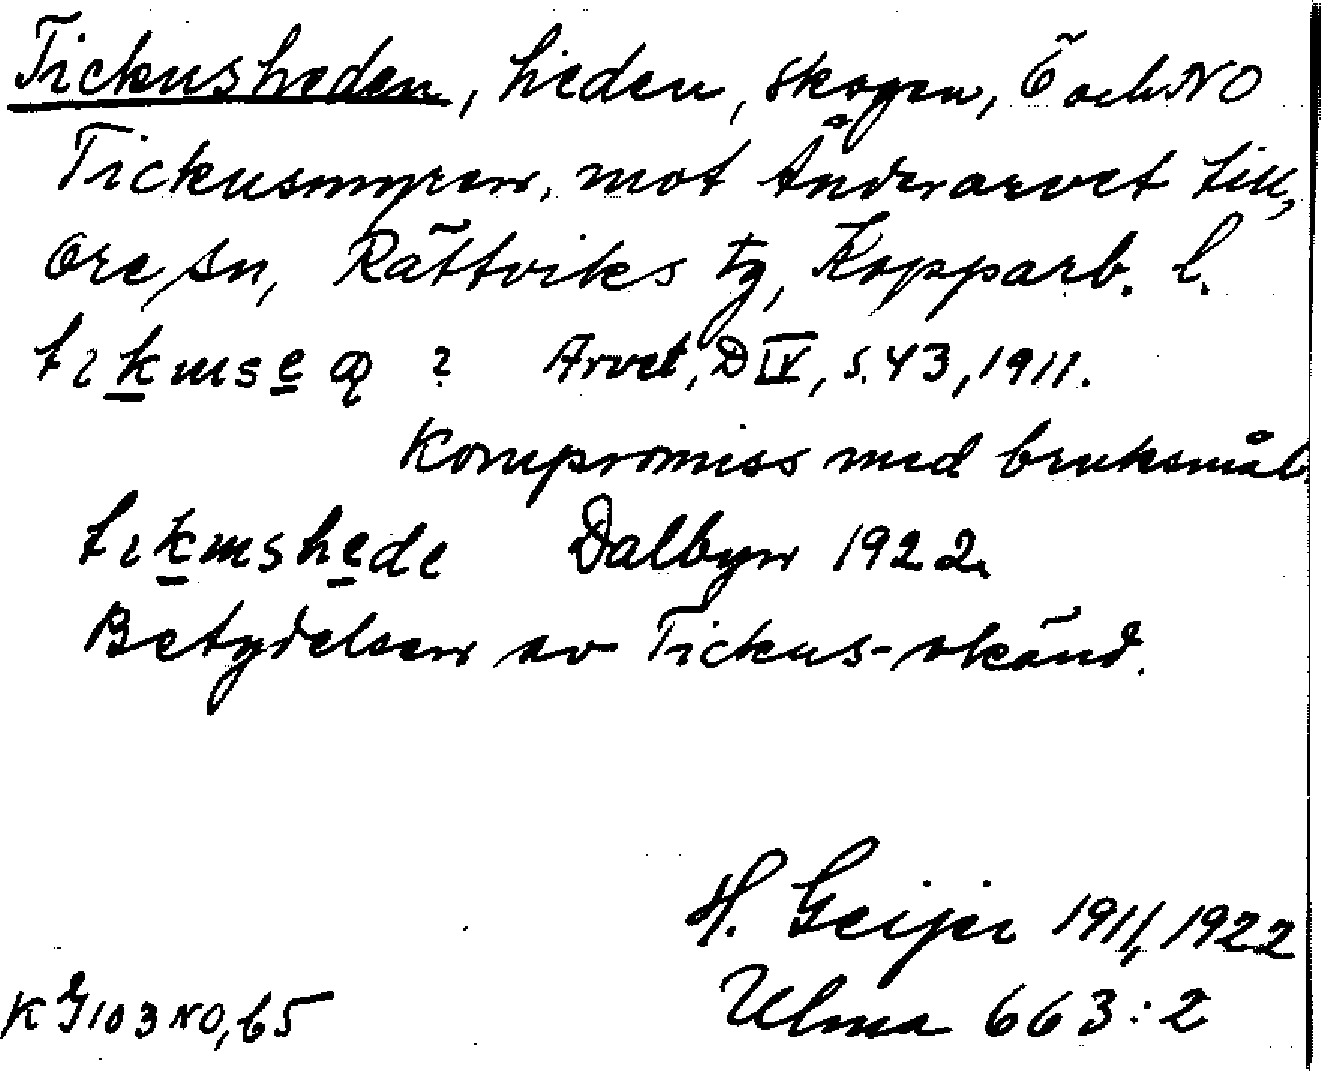 Tickusheden, heden, skogen, Ö och NO
Tickusmyren, mot Änderarvet till,
Ore sn, Rättviks tg, Kopparb. l.
tikuse ? Arvet, D IV, s. 43, 1911.
Kompromiss med bruksmål.
tikushede Dalbyn 1922.
Betydelsen av Tickus- okänd.
H. Geijer 1911, 1922
Ulma 663:2
K G 103 NO, 65